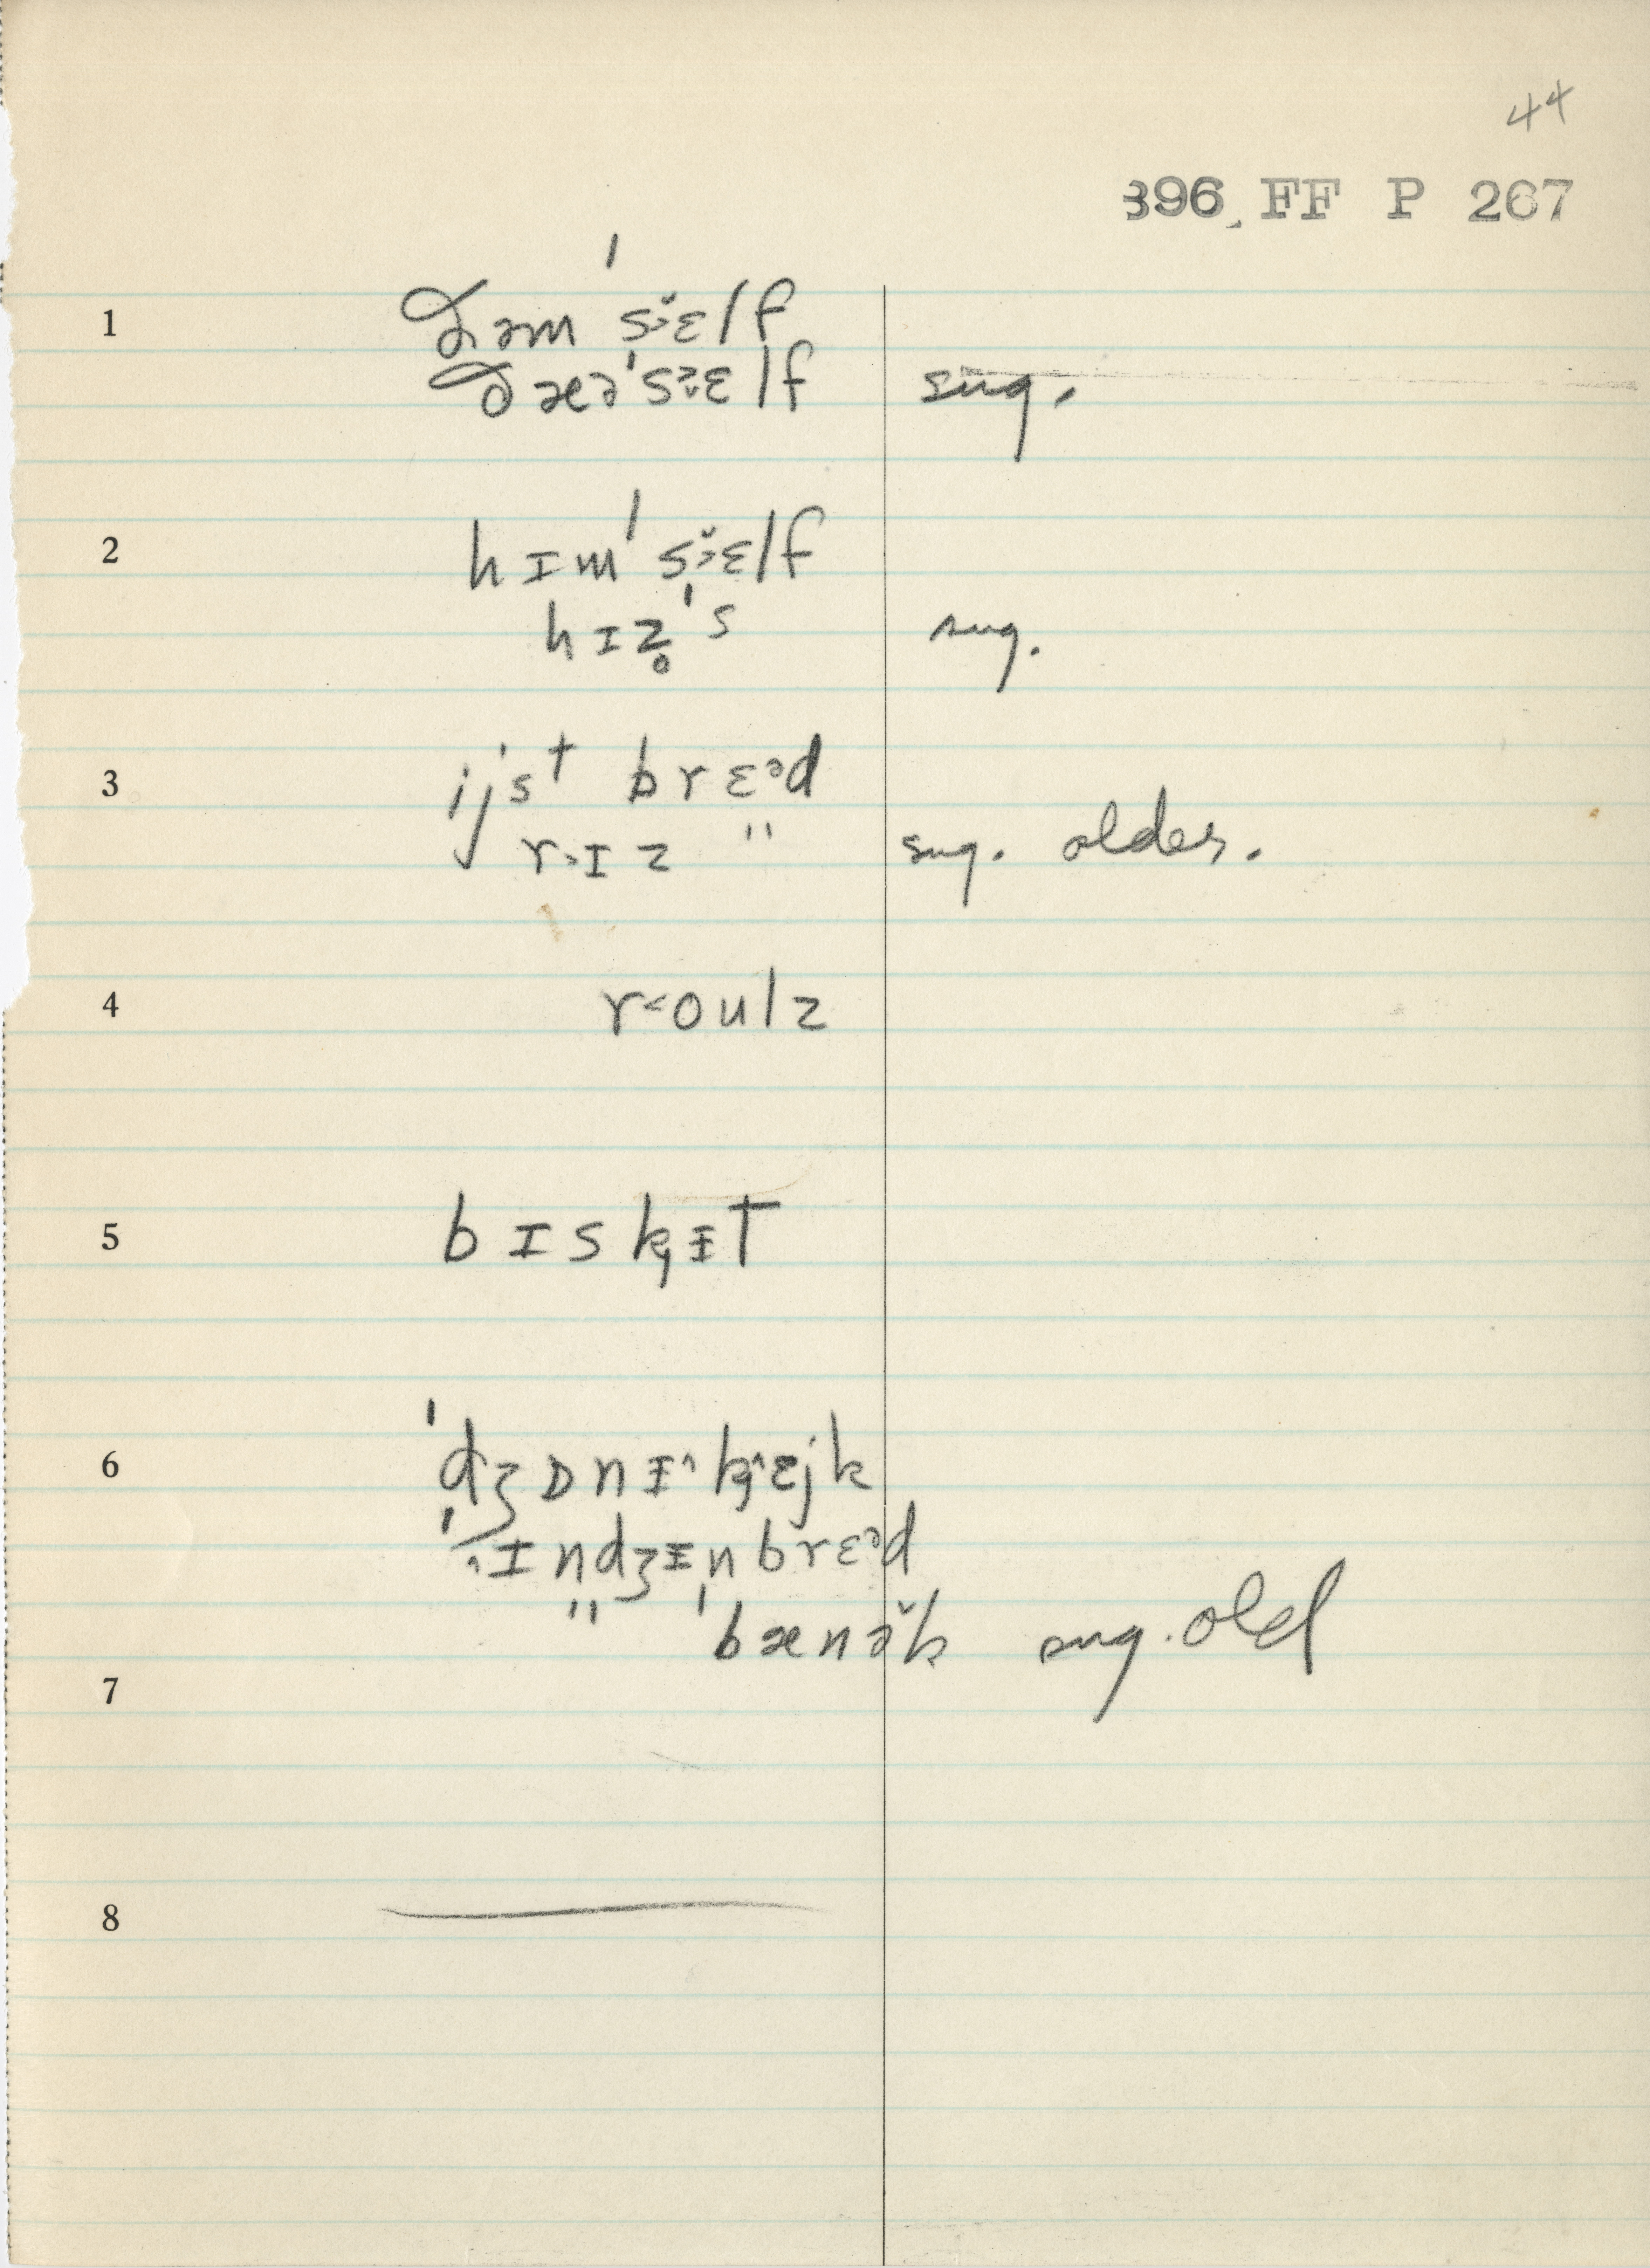 44
396 FF P 267
1 ðəm ˈsɛlf
ðæəˈsɛlf sug.
2 hɪm ˈsɛlf
hɪz̥ ˈs sug.
3 ijst brɛᵊd
rɪz " sug. older.
4 r<oulz
5 bɪskᵻt
6 ˈdʒɒnᵻ^ kɛjk
ˈɪndʒᵻn brɛᵊd
" ˈbænək sug. old
7
8